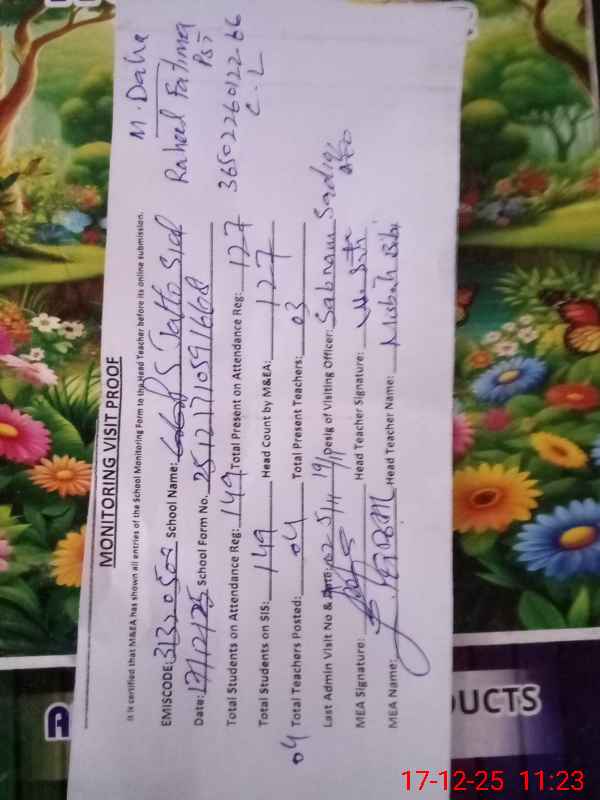 M. Daha
Raheed Fatima
PST
36502260122-66
C. L
MONITORING VISIT PROOF
It is certified that M&EA has shown all entries of the School Monitoring Form to the Head Teacher before its online submission.
EMISCODE: School Name: GGPS Jatto Sial
Date: 17/12/25 School Form No. 251217105916 68
Total Students on Attendance Reg: 149 Total Present on Attendance Reg: 127
Total Students on SIS: 149 Head Count by M&EA: 127
04 Total Teachers Posted: 04 Total Present Teachers: 03
Last Admin Visit No & Date: 02 5/11 19/11 Desig of Visiting Officer: Sabnam Sadiq AEO
MEA Signature: Head Teacher Signature:
MEA Name: Head Teacher Name: Misbah Bibi
A
DUCTS
17-12-25 11:23